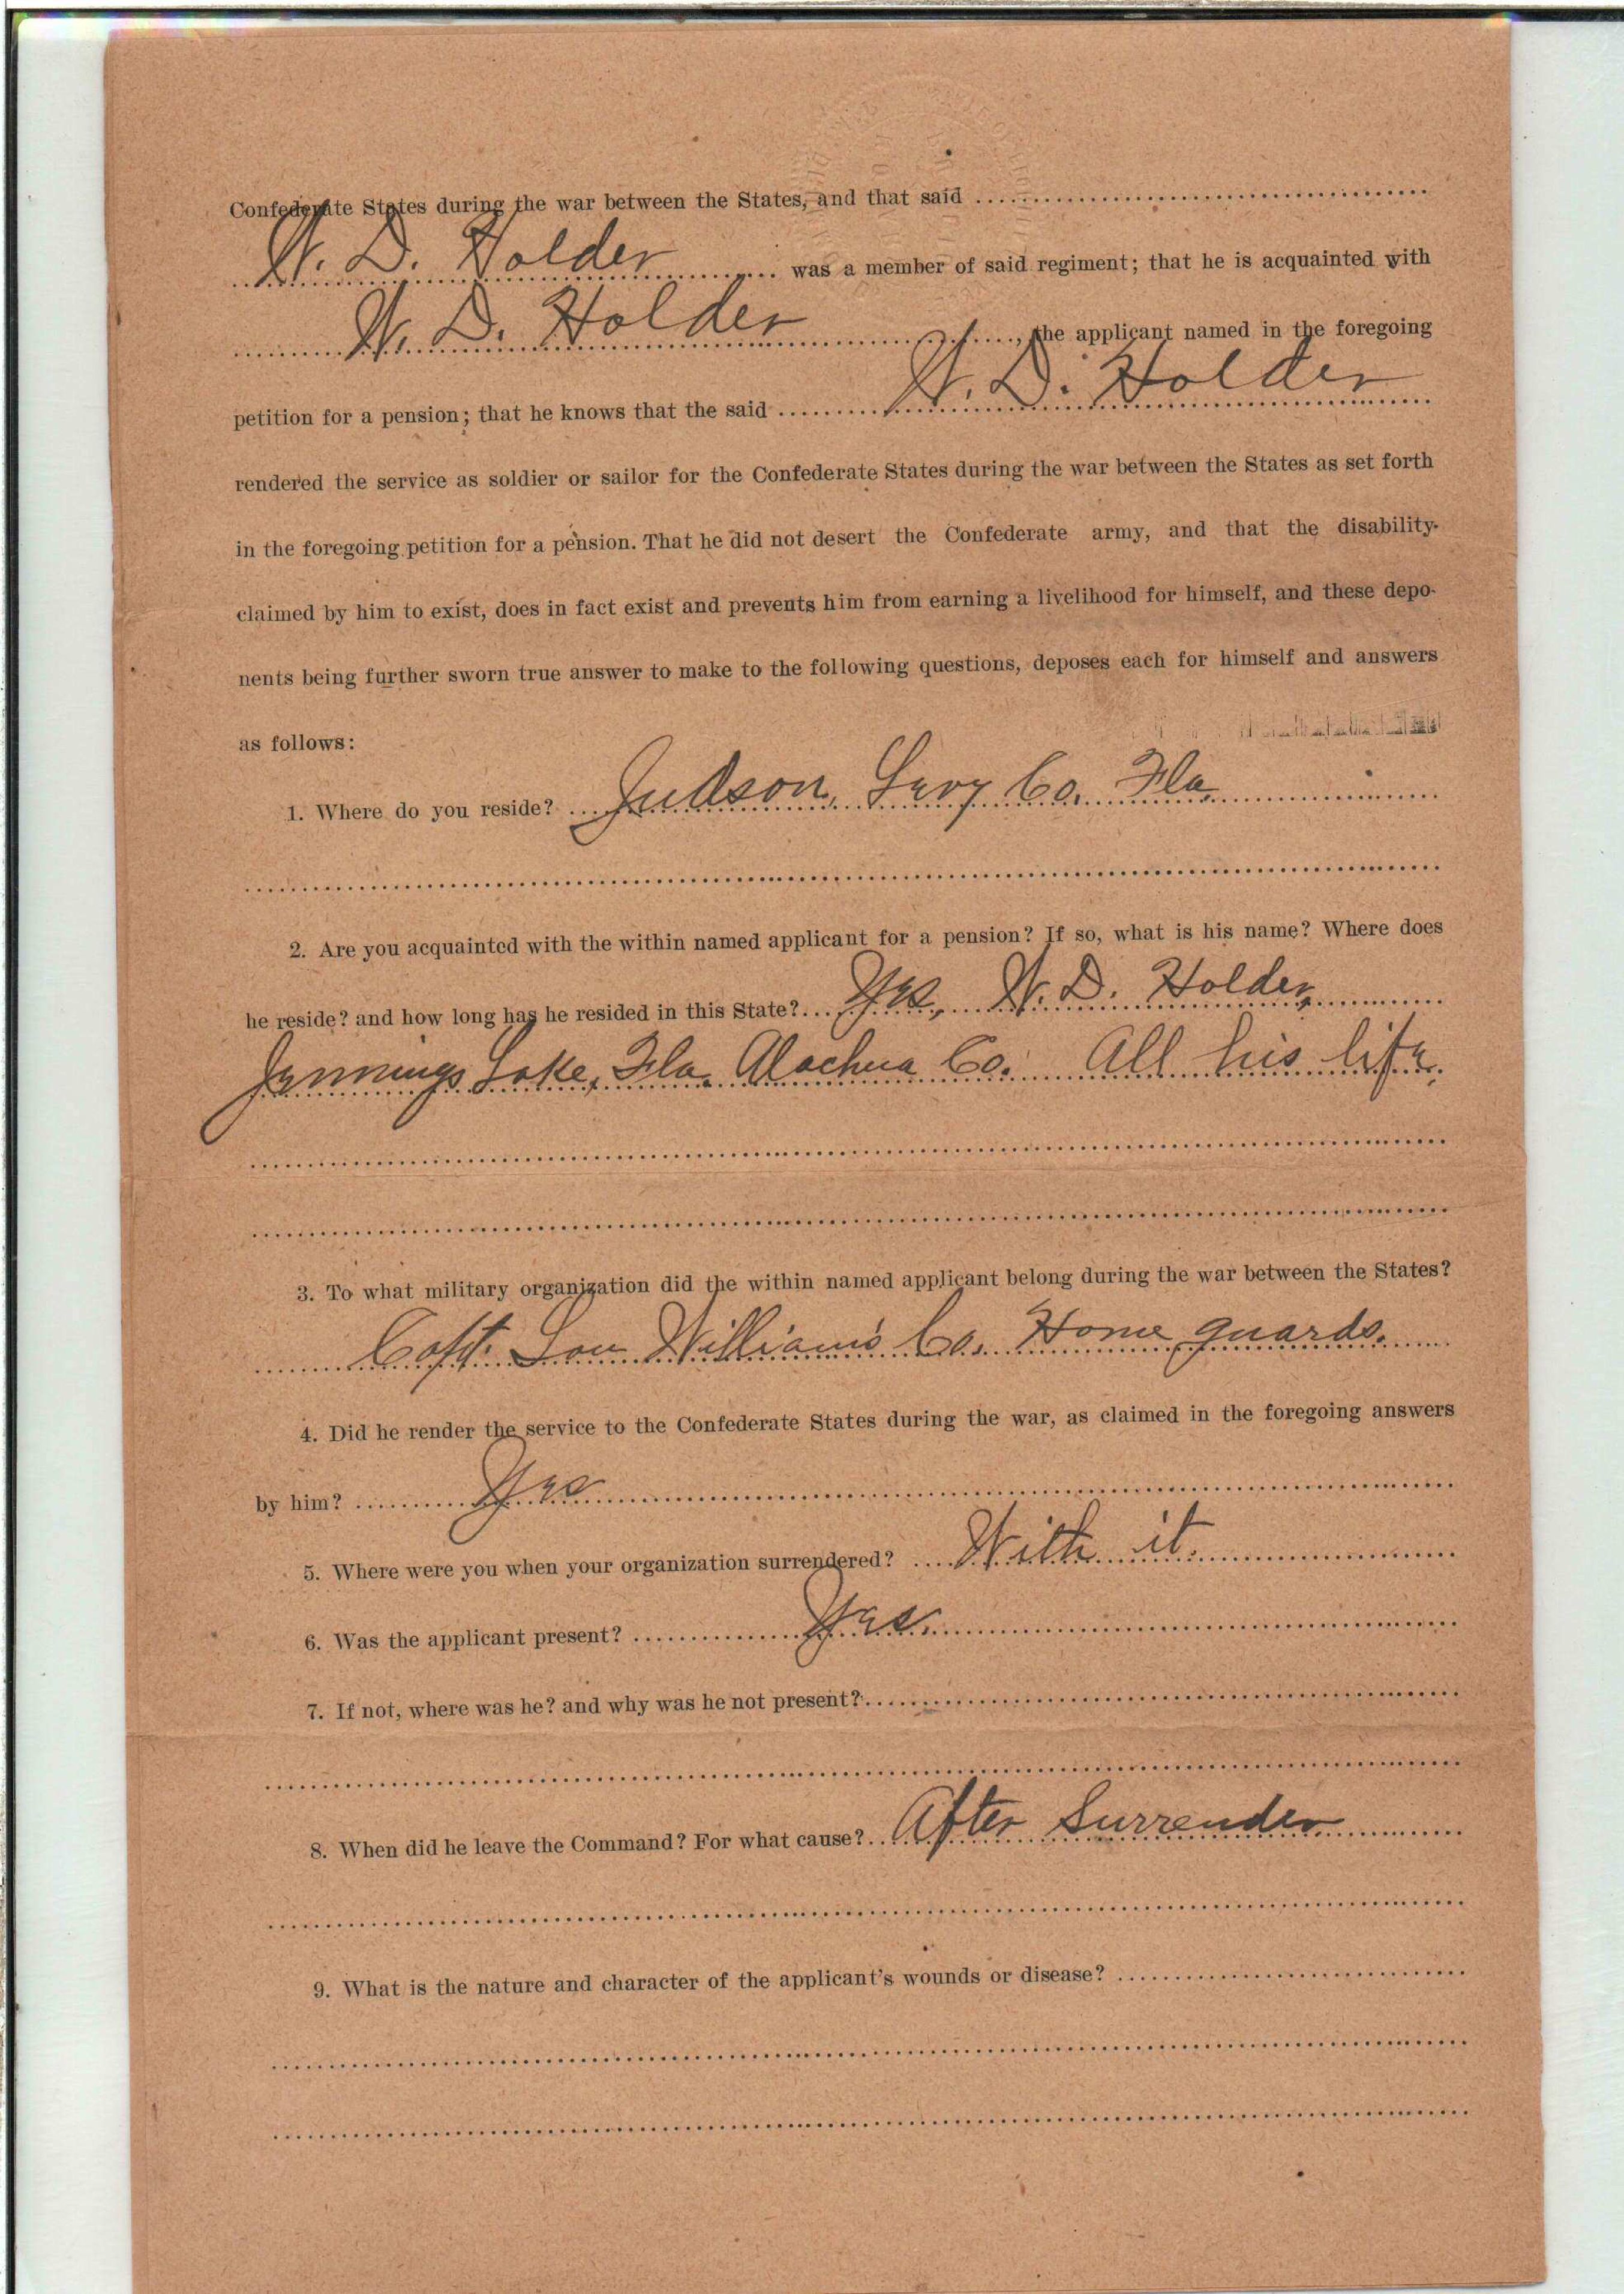 Confederate States during the war between the States, and that said
W. D. Holder was a member of said regiment; that he is acquainted with
W. D. Holder, the applicant named in the foregoing
petition for a pension; that he knows that the said W. D. Holder
rendered the service as soldier or sailor for the Confederate States during the war between the States as set forth
in the foregoing petition for a pension. That he did not desert the Confederate army, and that the disability
claimed by him to exist, does in fact exist and prevents him from earning a livelihood for himself, and these depo-
nents being further sworn true answer to make to the following questions, deposes each for himself and answers
as follows:
1. Where do you reside? Judson, Levy Co. Fla.
2. Are you acquainted with the within named applicant for a pension? If so, what is his name? Where does
he reside? and how long has he resided in this State? Yes, W. D. Holder,
Jennings Lake, Fla. Alachua Co. All his life.
3. To what military organization did the within named applicant belong during the war between the States?
Capt. Lou Williams Co. Home guards.
4. Did he render the service to the Confederate States during the war, as claimed in the foregoing answers
by him? Yes
5. Where were you when your organization surrendered? With it.
6. Was the applicant present? Yes.
7. If not, where was he? and why was he not present?
8. When did he leave the Command? For what cause? After Surrender
9. What is the nature and character of the applicant's wounds or disease?